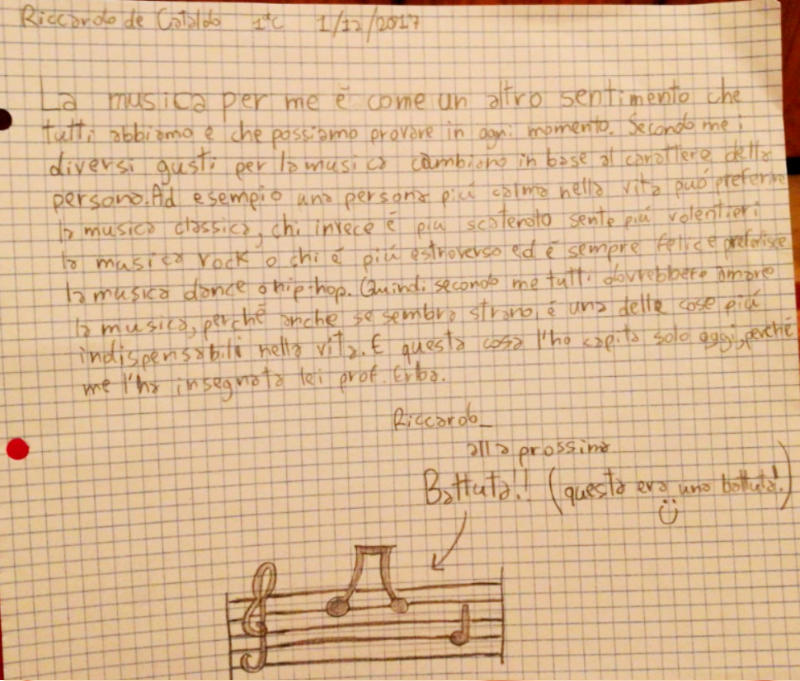 Riccardo de Cataldo 1°C 1/12/2017
La musica per me è come un altro sentimento che
tutti abbiamo e che possiamo provare in ogni momento. Secondo me i
diversi gusti per la musica cambiano in base al carattere della
persona. Ad esempio una persona piú calma nella vita può preferire
la musica classica, chi invece è piú scatenato sente piú volentieri
la musica rock o chi è piú estroverso ed è sempre felice preferisce
la musica dance o hip-hop. Quindi secondo me tutti dovrebbero amare
la musica, perché anche se sembra strano, è una delle cose piú
indispensabili nella vita. E questa cosa l'ho capita solo oggi, perché
me l'ha insegnata lei prof. Erba.
Riccardo
alla prossima
Battuta!! (questa era una battuta!)